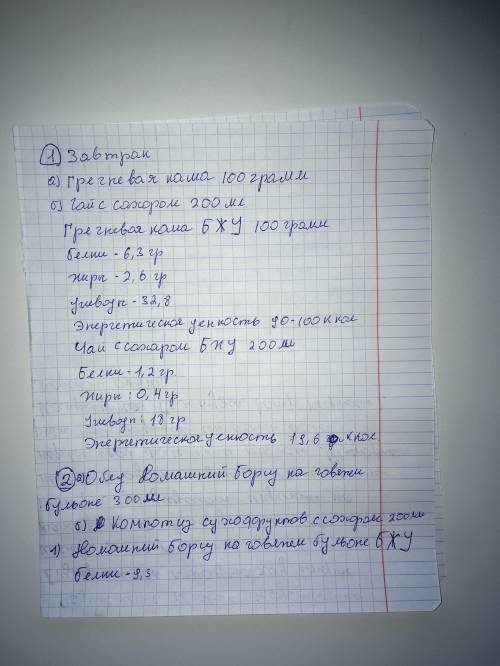 1 Завтрак
а) Гречневая каша 100 грамм
б) Чай с сахаром 200 мл
Гречневая каша БЖУ 100 грамм
Белки - 6,3 гр
Жиры - 2,6 гр
Углеводы - 32,8
Энергетическое ценность 90-100 ккал
Чай с сахаром БЖУ 200 мл
Белки - 1,2 гр
Жиры: 0,4 гр
Углеводы: 18 гр
Энергетическое ценность 79,6 ккал
2 а) Обед Домашний борщ на говяжи
бульоне 300 мл
б) Компот из сухофруктов с сахаром 200 мл
1) Домашний борщ на говяжем бульоне БЖУ
Белки - 9,3